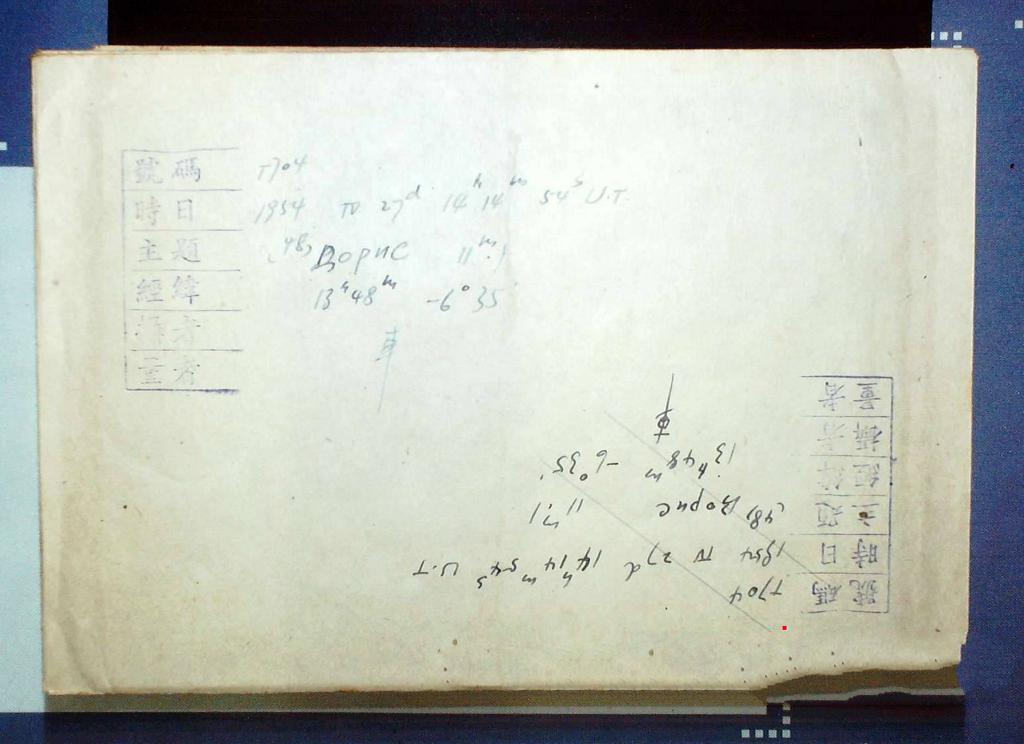 號碼 T704
時日 1954 IV 27d 14h 14m 54s U.T.
主題 (48) Дорис 11m.1
經緯 13h 48m -6° 35'
攝者 車
量者
號碼 T704
時日 1954 IV 27d 14h 14m 54s U.T
主題 (48) Дорис 11m.1
經緯 13h 48m -6° 35'
攝者 車
量者